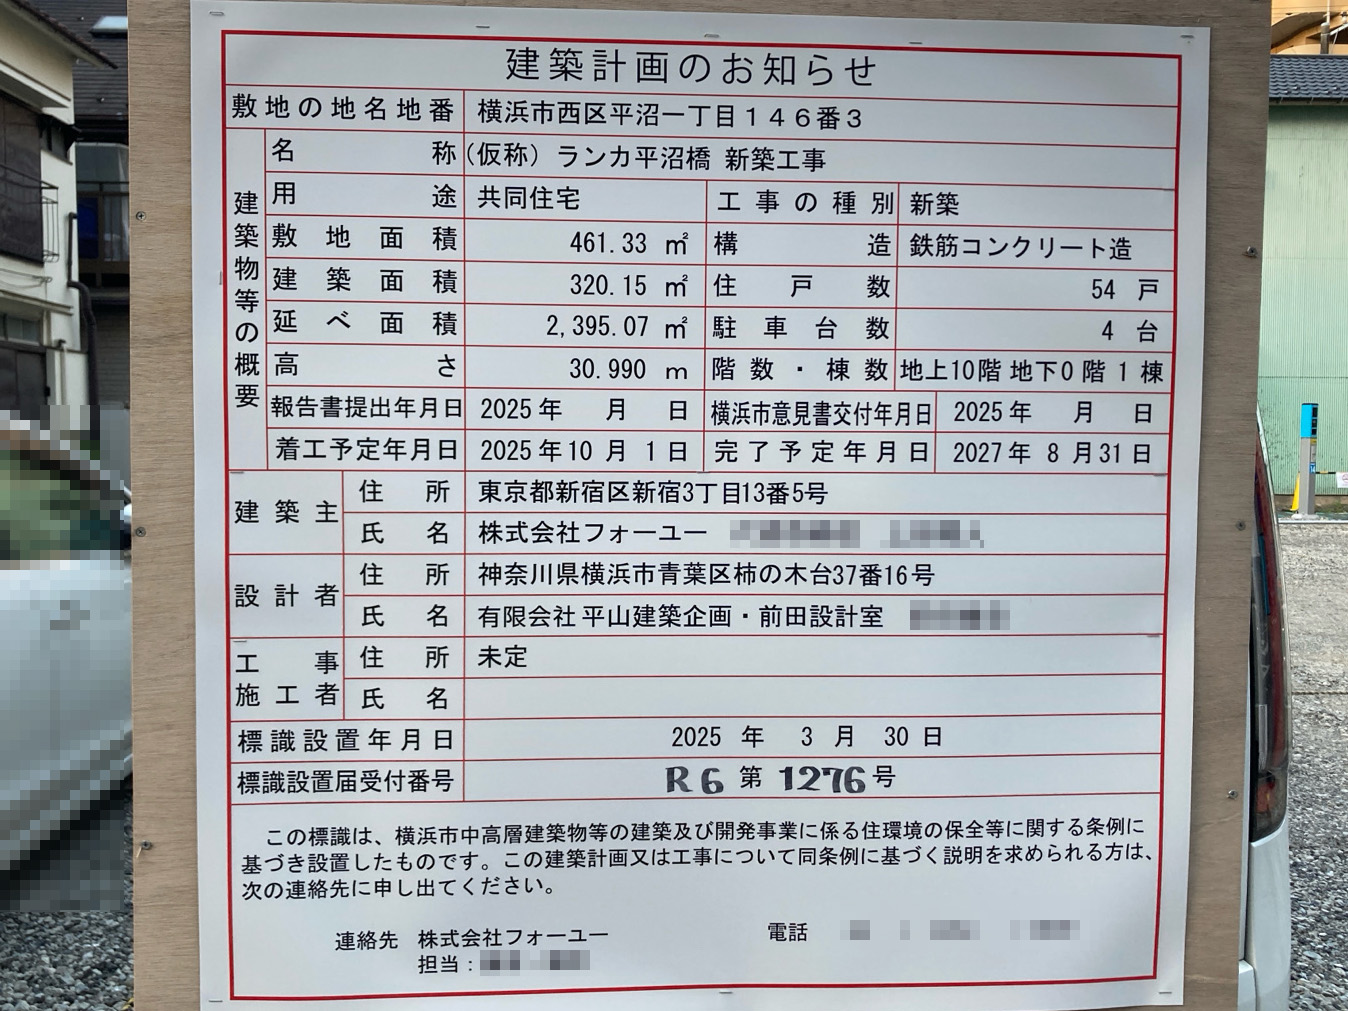 建築計画のお知らせ
敷地の地名地番 横浜市西区平沼一丁目１４６番３
建築物等の概要
名称 (仮称）ランカ平沼橋 新築工事
用途 共同住宅 工事の種別 新築
敷地面積 461.33 ㎡ 構造 鉄筋コンクリート造
建築面積 320.15 ㎡ 住戸数 54 戸
延べ面積 2,395.07 ㎡ 駐車台数 4 台
高さ 30.990 m 階数・棟数 地上10階 地下0階 1 棟
報告書提出年月日 2025年 月 日 横浜市意見書交付年月日 2025年 月 日
着工予定年月日 2025年10月 1日 完了予定年月日 2027年 8月31日
建築主 住所 東京都新宿区新宿3丁目13番5号
氏名 株式会社フォーユー
設計者 住所 神奈川県横浜市青葉区柿の木台37番16号
氏名 有限会社 平山建築企画・前田設計室
工事施工者 住所 未定
氏名
標識設置年月日 2025 年 3 月 30 日
標識設置届受付番号 R6 第 1276 号
この標識は、横浜市中高層建築物等の建築及び開発事業に係る住環境の保全等に関する条例に
基づき設置したものです。この建築計画又は工事について同条例に基づく説明を求められる方は、
次の連絡先に申し出てください。
連絡先 株式会社フォーユー 電話
担当：